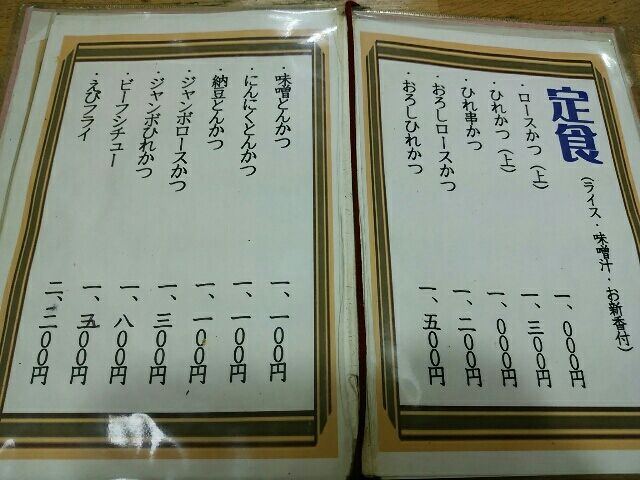 定食（ライス・味噌汁・お新香付）
・ロースかつ（上） 一、〇〇〇円
・ひれかつ（上） 一、三〇〇円
・ひれ串かつ 一、〇〇〇円
・おろしロースかつ 一、二〇〇円
・おろしひれかつ 一、五〇〇円
・味噌とんかつ 一、一〇〇円
・にんにくとんかつ 一、一〇〇円
・納豆とんかつ 一、一〇〇円
・ジャンボロースかつ 一、三〇〇円
・ジャンボひれかつ 一、八〇〇円
・ビーフシチュー 一、五〇〇円
・えびフライ 二、二〇〇円